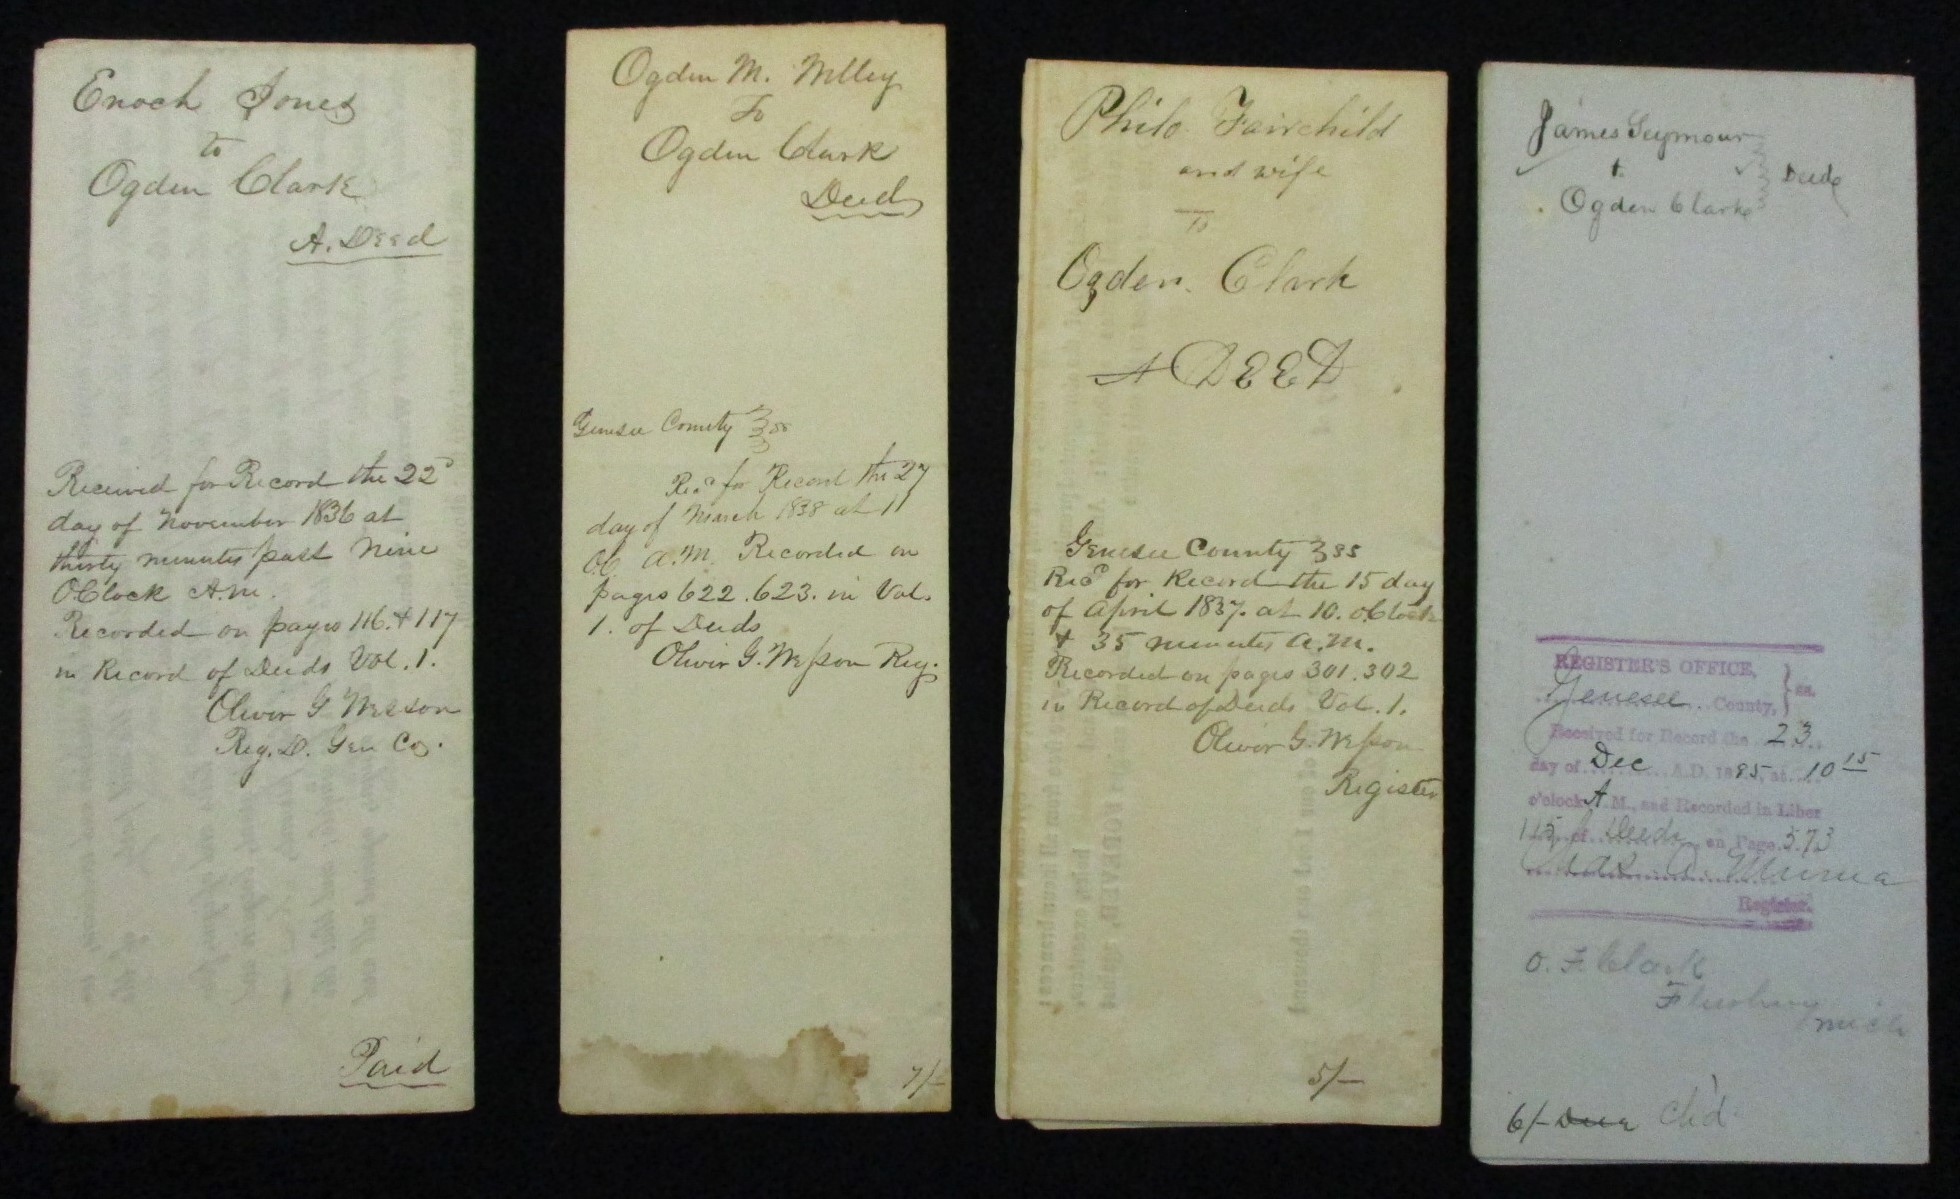 Enoch Jones
to
Ogden Clark
A. Deed
Received for Record the 22d
day of November 1836 at
thirty minutes past Nine
OClock A.M.
Recorded on pages 116. & 117
in Record of Deeds Vol. 1.
Oliver G Wesson
Reg. D. Gen Co.
Paid
Ogden M.
To
Ogden Clark
Deed
Genesee County } ss
Recd for Record the 27
day of March 1838 at 11
OC A.M. Recorded on
pages 622. 623. in Vol.
1. of Deeds
Oliver G. Wesson Reg.
7/-
Philo Fairchild
and wife
To
Ogden. Clark
A DEED
Genesee County } ss
Recd for Record the 15 day
of April 1837. at 10. oClock
& 35 minutes A.M.
Recorded on pages 301. 302
in Record of Deeds Vol. 1.
Oliver G. Wesson
Register
5/-
James Seymour
t.
Ogden Clark
Deed
REGISTER'S OFFICE,
Genesee County, } ss.
Received for Record the 23
day of Dec A.D. 1895, at 10 15
o'clock A. M., and Recorded in Liber
115 of Deeds on Page 573
Chas. A. Muma
Register.
O. F. Clark
Flushing
Mich
6/- Due Ch'd